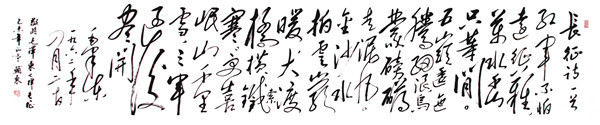 長征诗一首
红軍不怕
遠征難
萬水千山
只等閒
五嶺逶迤
騰細浪烏
蒙磅礴
走泥丸
金沙水
拍雲崖
暖大渡
橋橫鉄索
寒更喜
岷山千里
雪三軍
过後
盡開
毛澤東
一九六二年
四月二十日